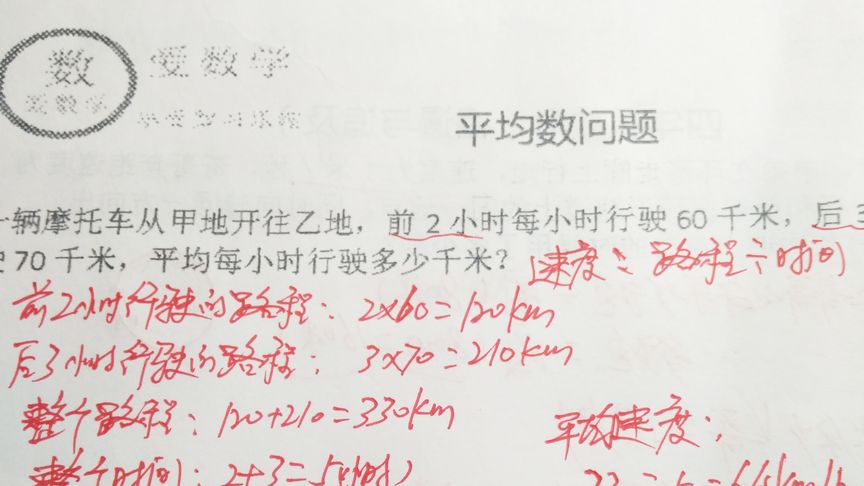 数
爱数学
爱数学
平均数问题
一辆摩托车从甲地开往乙地，前 2 小时每小时行驶 60 千米，后 3
驶 70 千米，平均每小时行驶多少千米？
速度=路程÷时间
前2小时行驶的路程：2×60=120km
后3小时行驶的路程：3×70=210km
整个路程：120+210=330km
平均速度：
整个时间：2+3=5(小时)